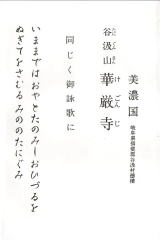 美濃国
岐阜県揖斐郡谷汲村徳積
谷汲山 華厳寺
けごんじ
同じく御詠歌に
いままではおやとたのみしおひづるを
ぬぎてをさむるみののたにぐみ